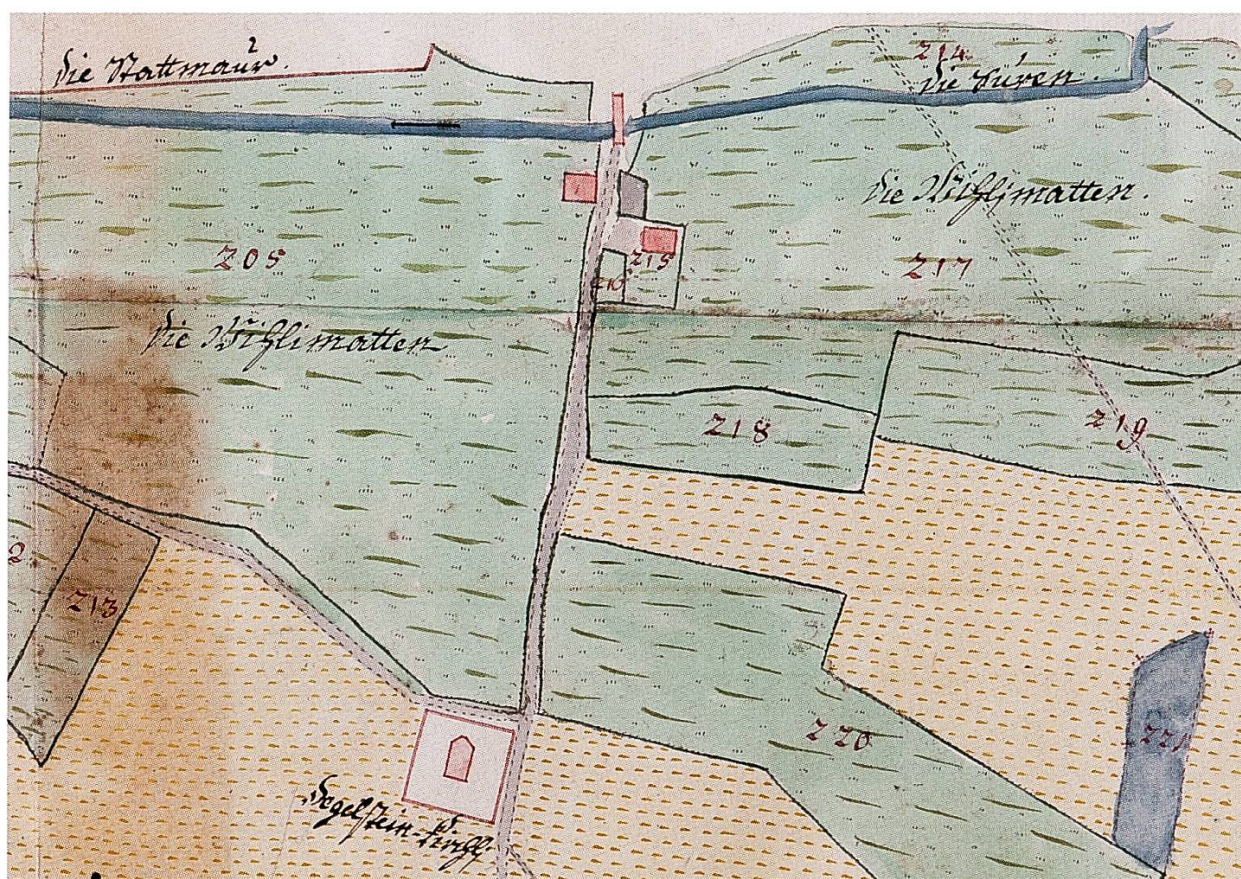 die Stattmaür.
214
die Süren.
die Mühlimatten.
205
215
216
217
die Mühlimatten
218
219
2
213
220
221
Degelstein-Kirchli